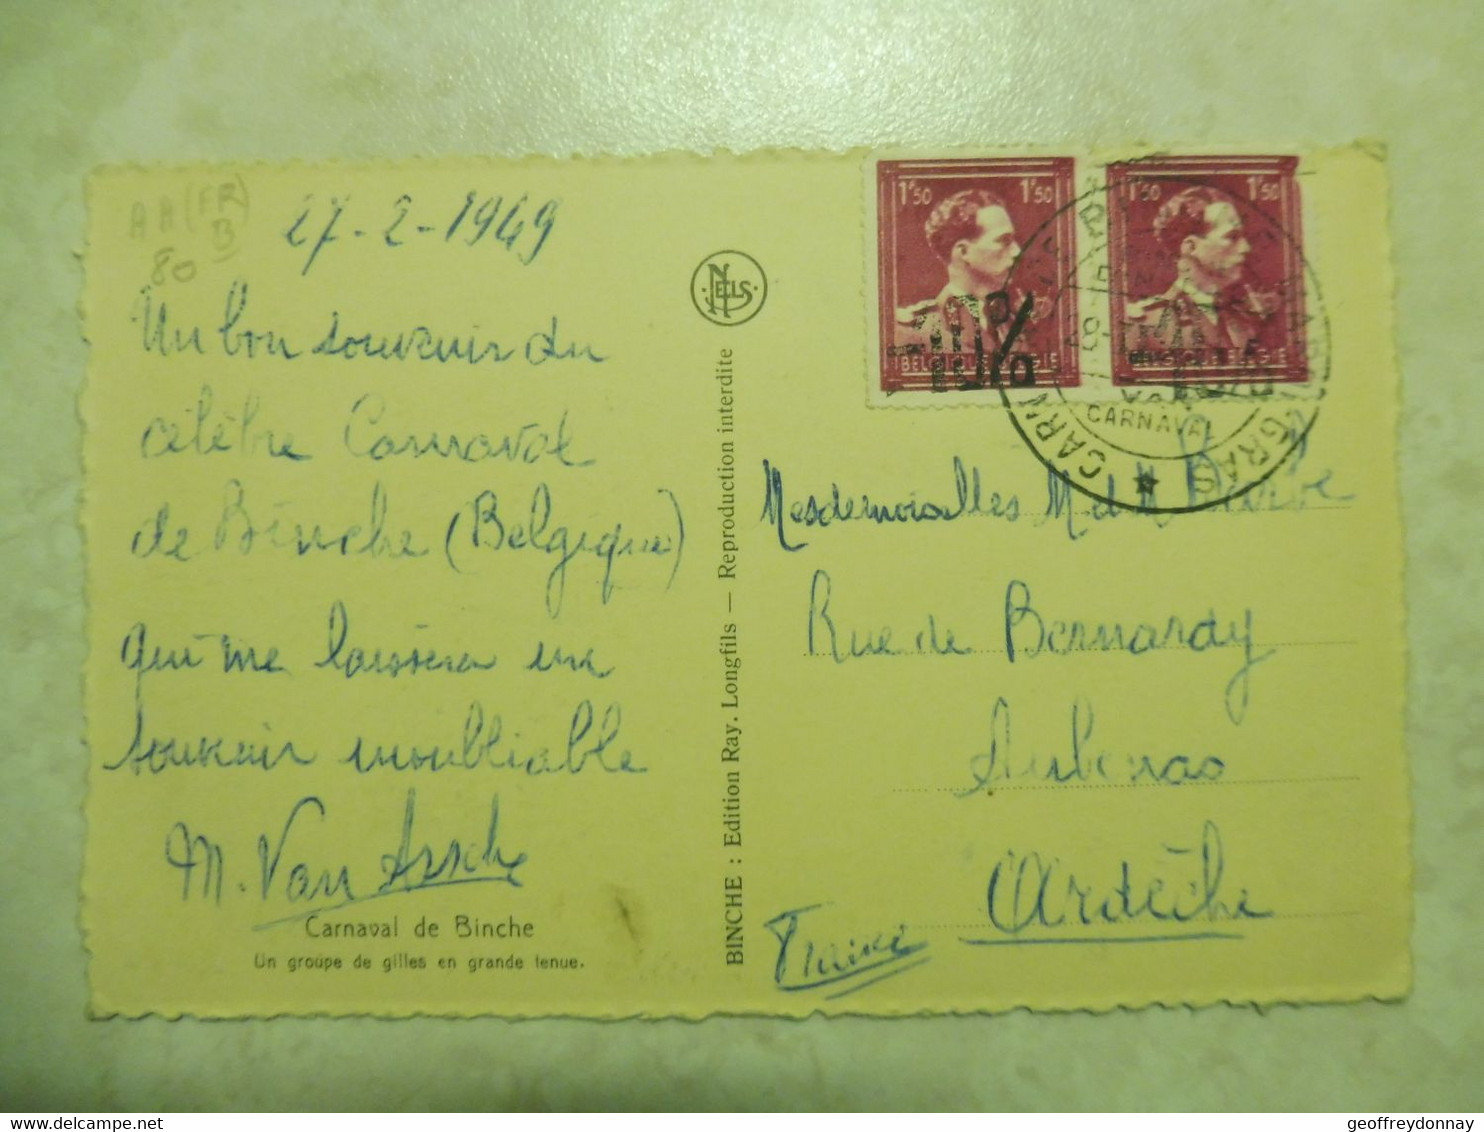 A A (FR)
B
80
27-2-1949
Un bon souvenir du
célèbre Carnaval
de Binche (Belgique)
qui me laissera un
souvenir inoubliable
M. Van Assche
Carnaval de Binche
Un groupe de gilles en grande tenue.
NELS
BINCHE : Edition Ray. Longfils — Reproduction interdite
1F50 1F50
-10%
BELGIQUE BELGIE
1F50 1F50
-10%
BELGIQUE BELGIE
CARNAVAL
GRAS
Mesdemoiselles M et M
Rue de Bernardy
Aubenas
Ardèche
France
geoffreydonnay